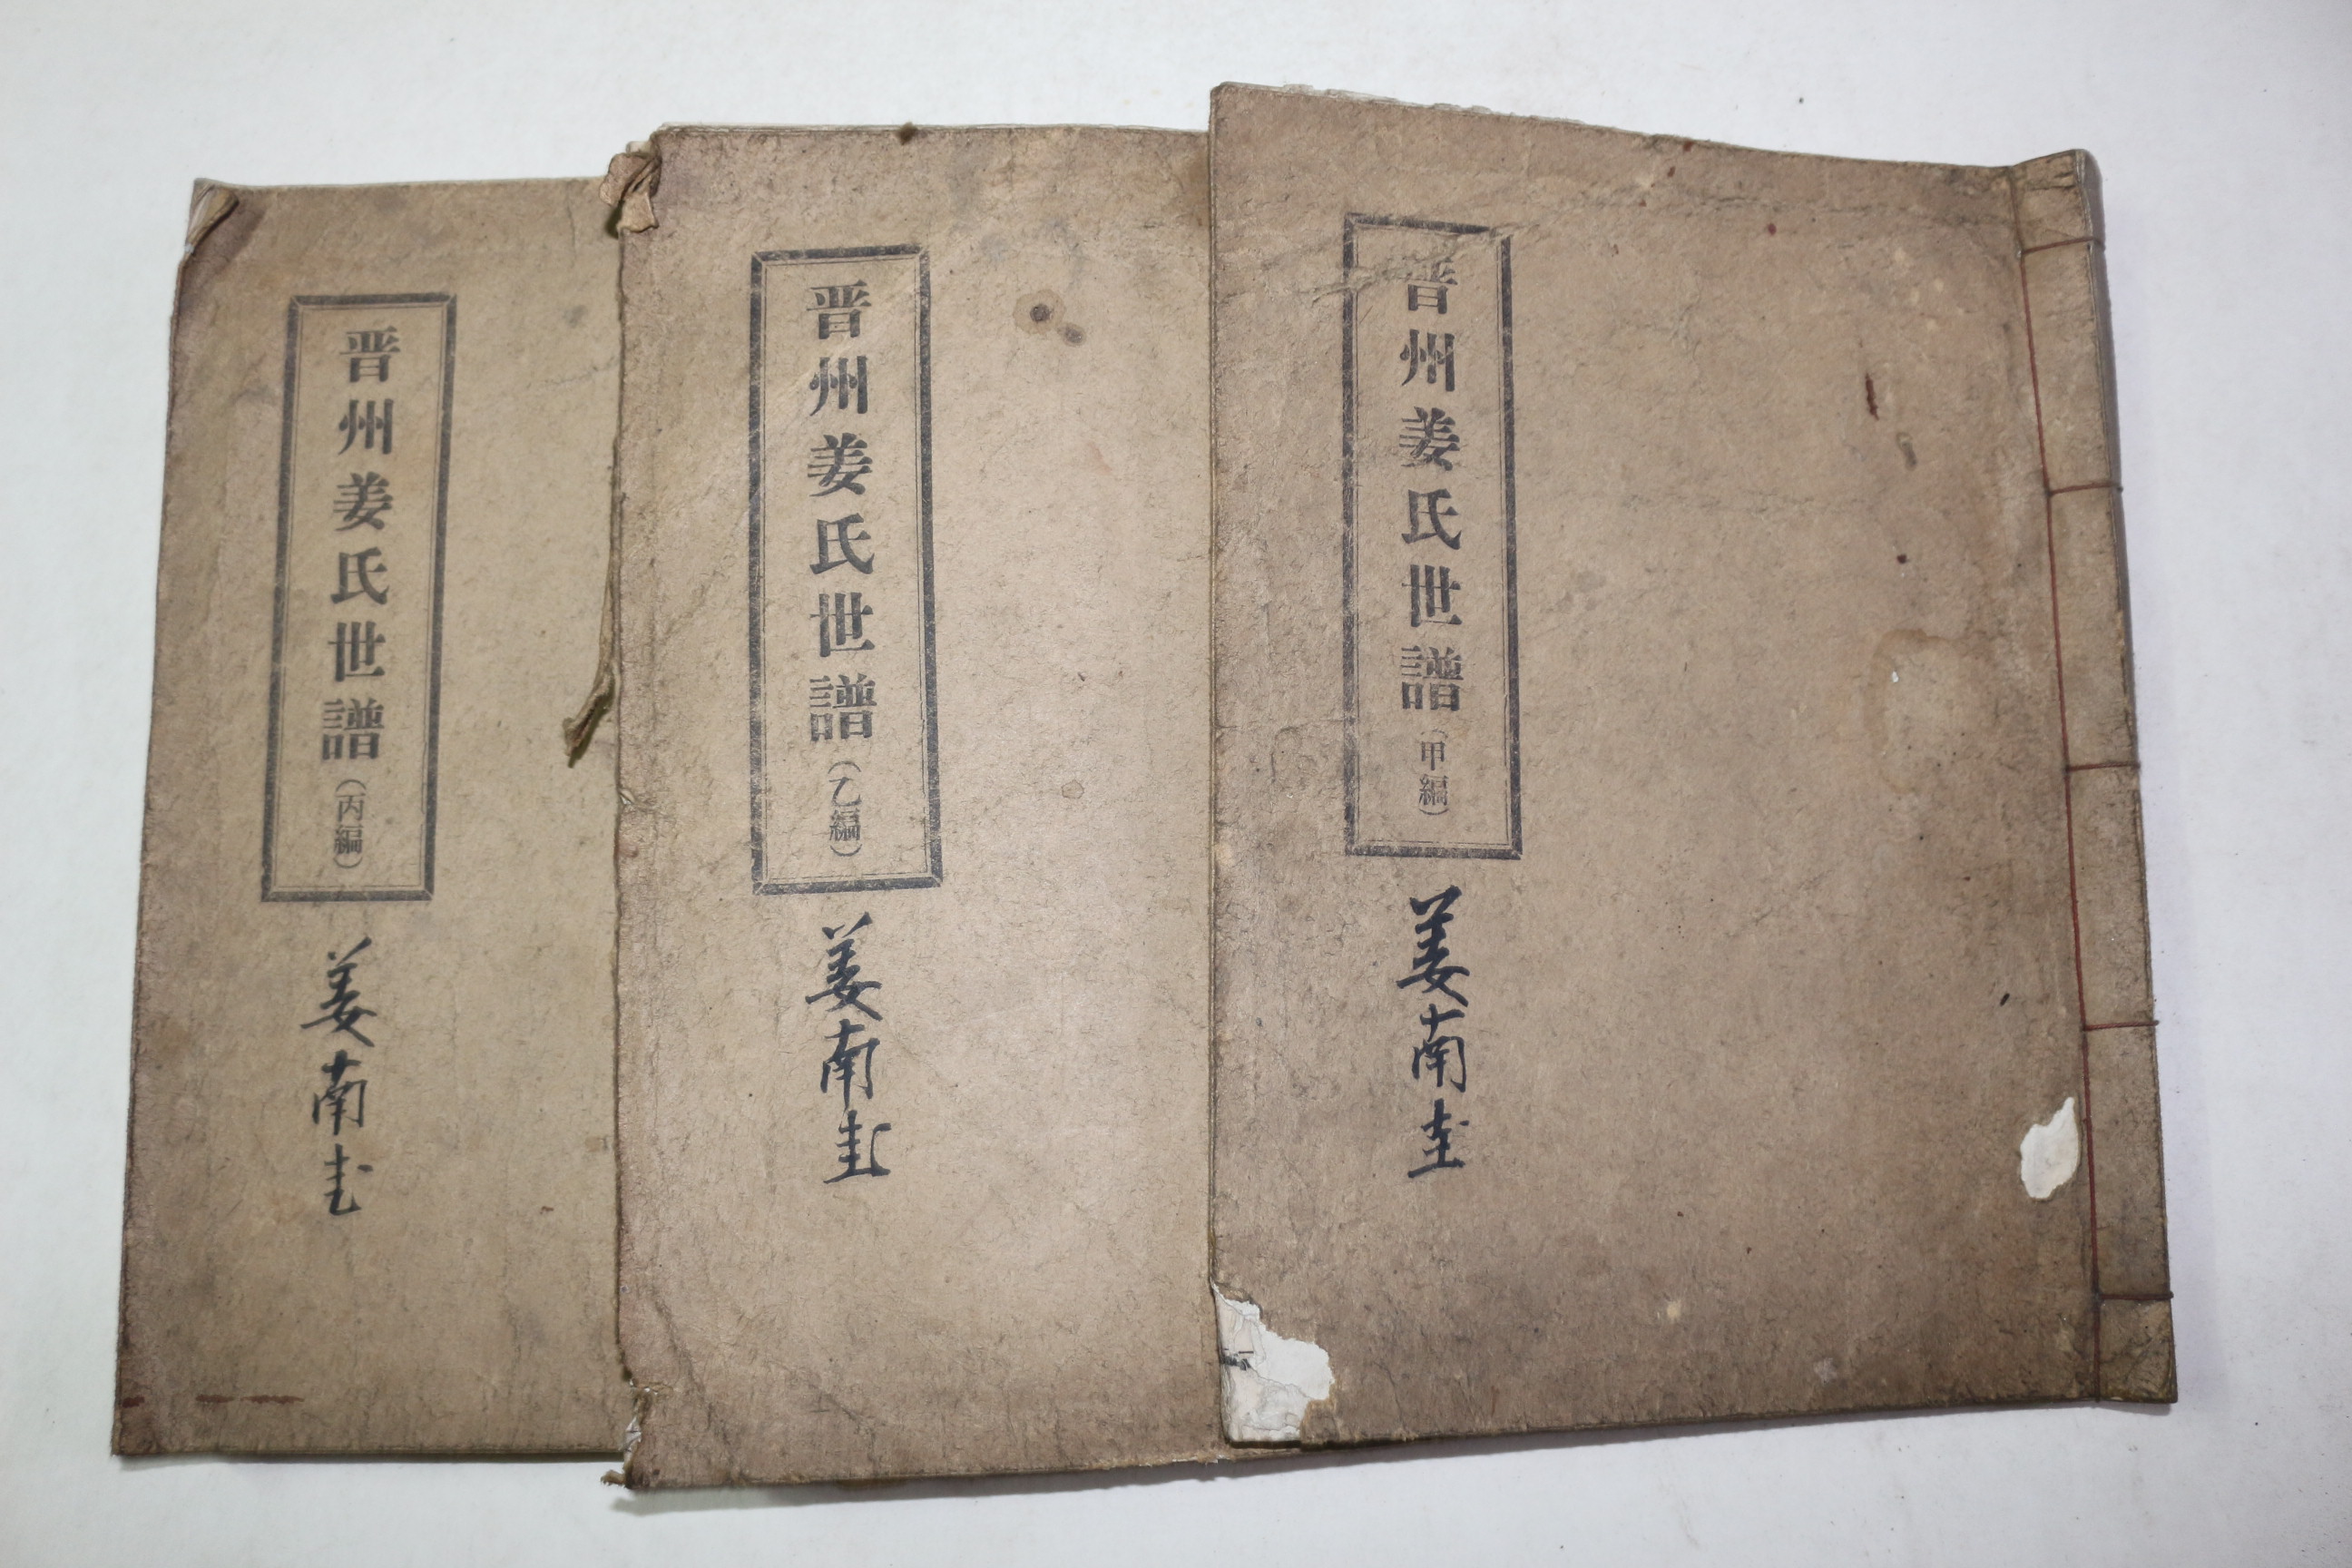 晋州姜氏世譜（甲編）
姜南圭
晋州姜氏世譜（乙編）
姜南圭
晋州姜氏世譜（丙編）
姜南圭